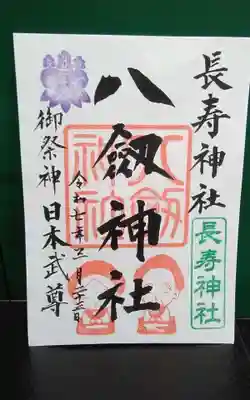 長寿神社
長寿神社
八剱神社
八剱神社
令和七年三月二十三日
御祭神 日本武尊